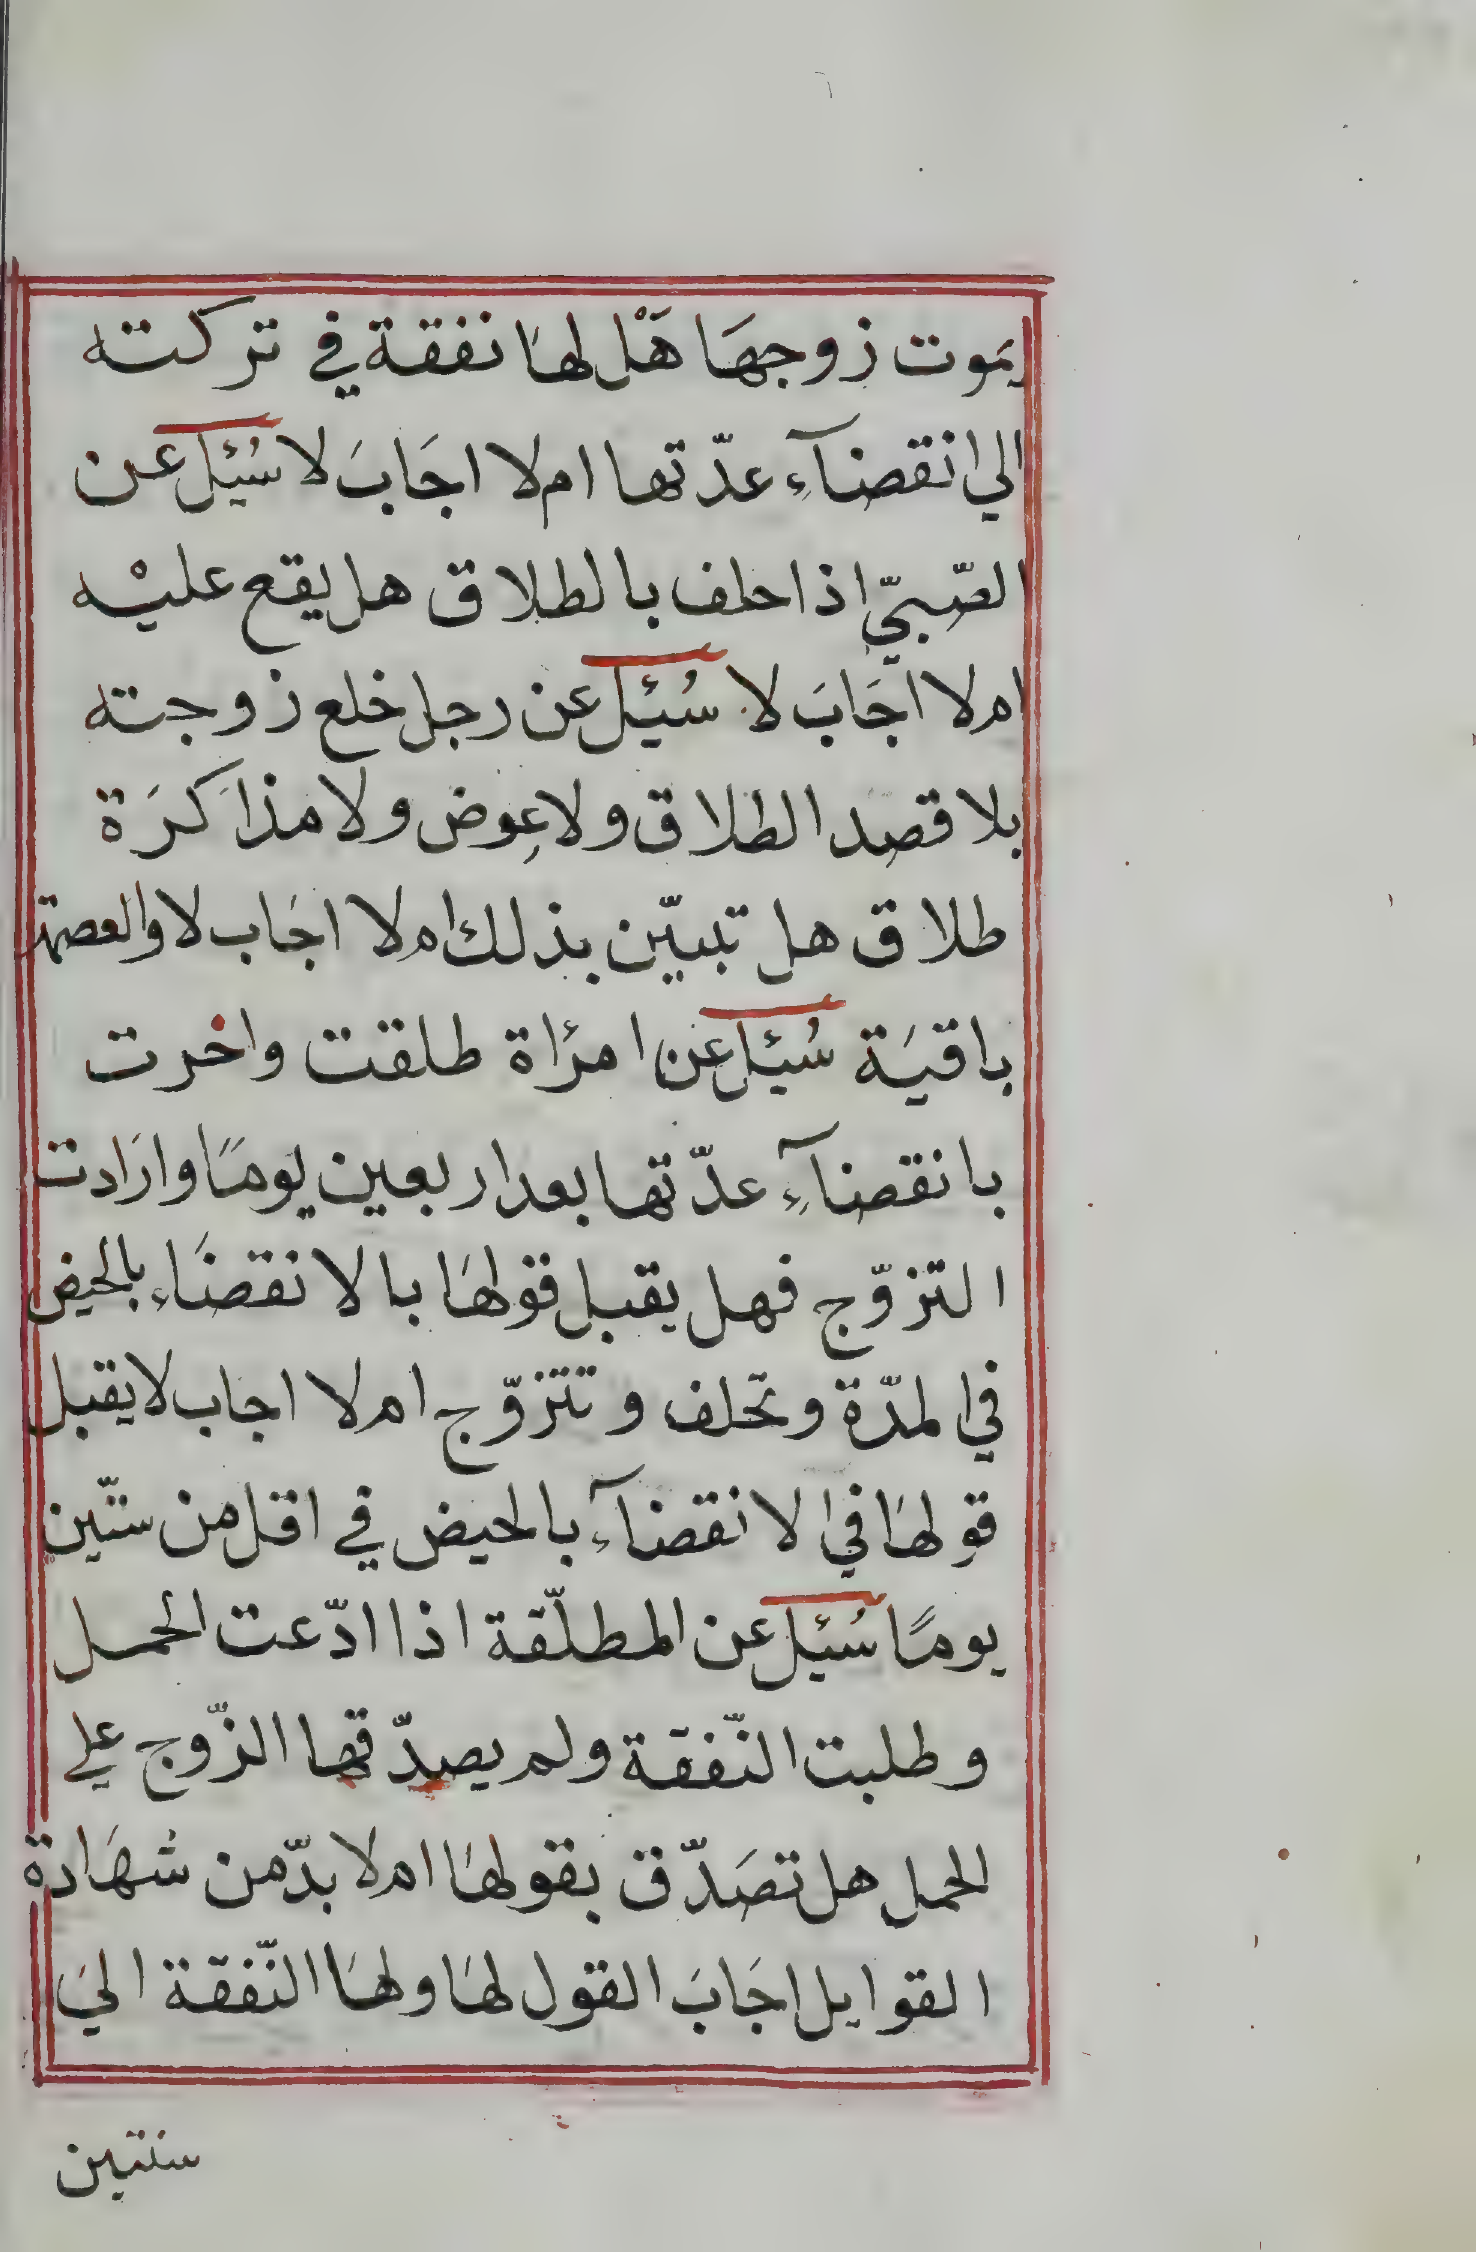 بموت زوجهَا هَلْ لهَا نفقة في تركته
الي انقضآءِ عدّتها ام لا اجَابَ لا سُئِل عن
الصّبيّ اذا حلف بالطلاق هل يقع عليْه
ام لا اجَابَ لا سُئِل عن رجل خلع زوجته
بلا قصد الطلاق ولا عِوض ولا مذاكرَة
طلاق هل تبيّن بذلك ام لا اجَاب لا والعصمة
باقيَة سُئِل عن امرأة طلقت واخرت
بانقضآءِ عدّتها بعد اربعين يومًا وارَادت
التزوّج فهل يقبل قولهَا بالانقضَاء بالحيض
في المدّة وتحلف وتتزوّج ام لا اجاب لا يقبل
قولهَا في الانقضآء بالحيض في اقل من ستّين
يومًا سُئِل عن المطلّقة اذا ادّعت الحمل
وطلبت النّفقة ولم يصدّقها الزّوج علي
الحمل هل تصَدّق بقولهَا ام لا بدّ من شهَادة
القوايل اجَابَ القول لهَا ولهَا النّفقة اليَ
سنتين